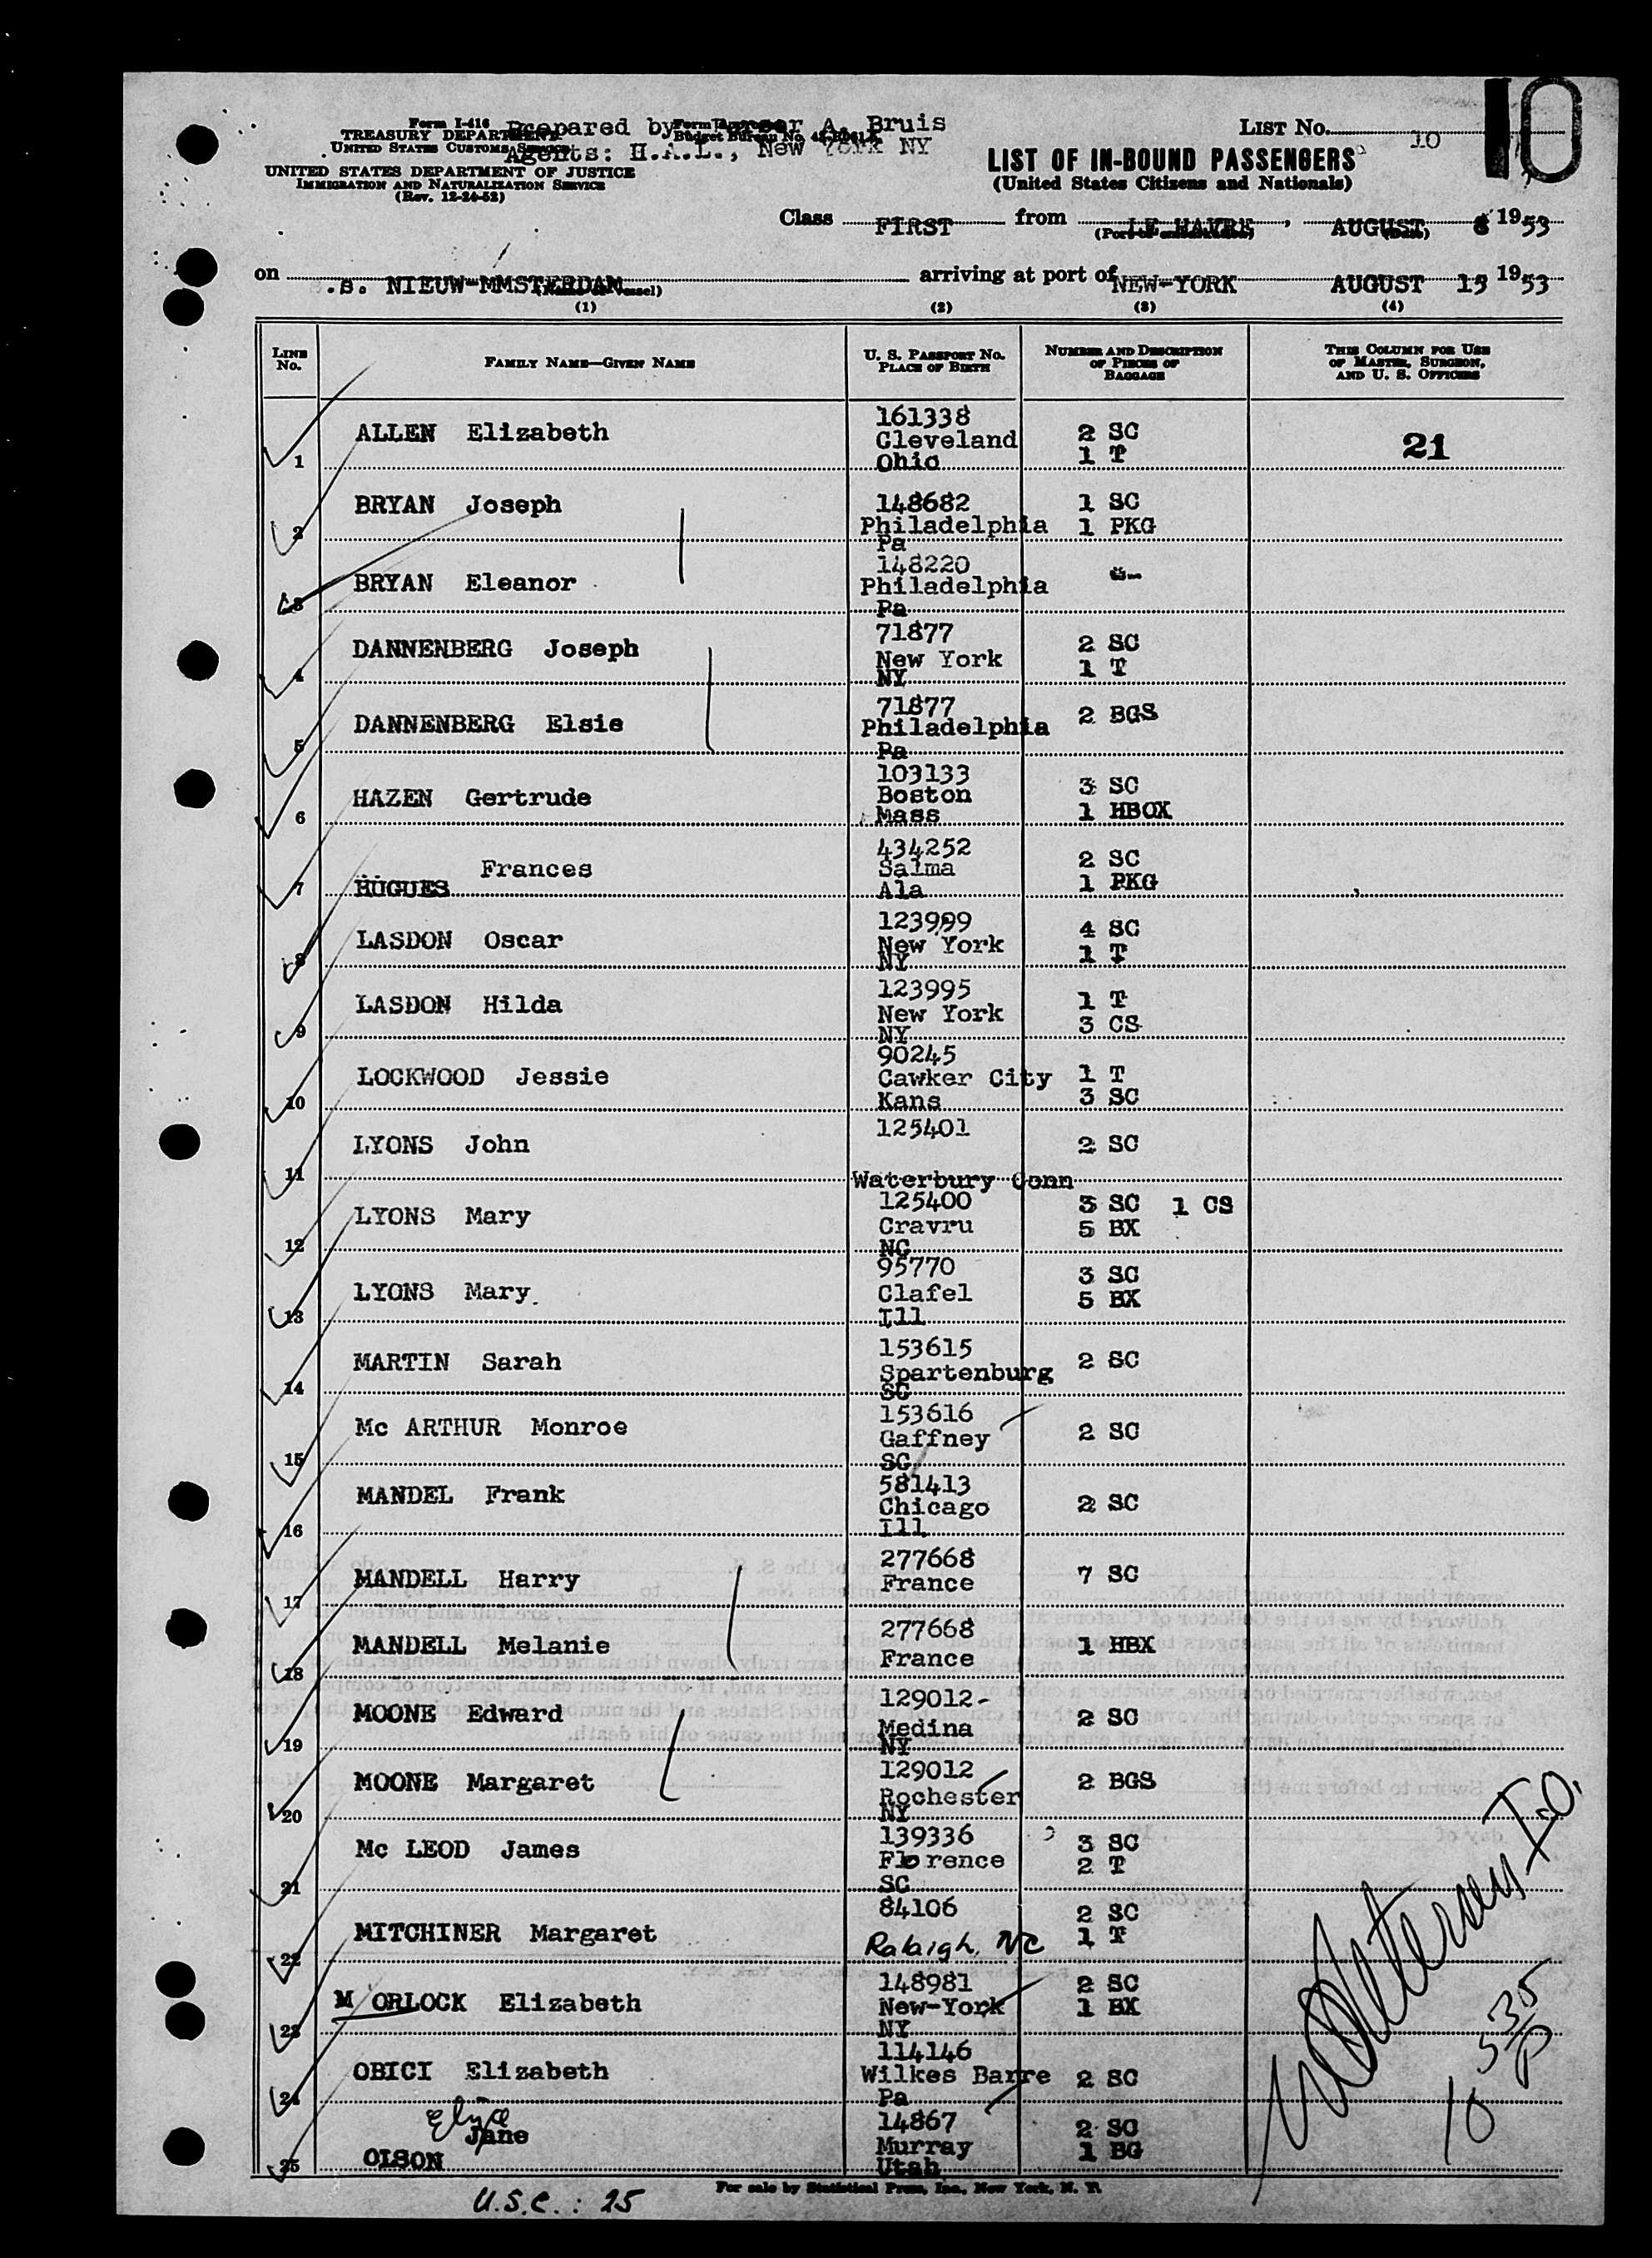 Form I-416
TREASURY DEPARTMENT
UNITED STATES CUSTOMS SERVICE
UNITED STATES DEPARTMENT OF JUSTICE
IMMIGRATION AND NATURALIZATION SERVICE
(Rev. 12-24-52)
Prepared by A. Bruis
Agents: H.A.L., New York NY
Form Approved
Budget Bureau No.
LIST No. 10
10
LIST OF IN-BOUND PASSENGERS
(United States Citizens and Nationals)
Class FIRST from LE HAVRE, AUGUST 8 1953
(Port of embarkation) (Date)
on .s. NIEUW-MMSTERDAM arriving at port of NEW-YORK AUGUST 15 1953
(Name of vessel)
(1) (2) (3) (4)
LINE No.
FAMILY NAME—GIVEN NAME
U. S. PASSPORT No. PLACE OF BIRTH
NUMBER AND DESCRIPTION OF PIECES OF BAGGAGE
THIS COLUMN FOR USE OF MASTER, SURGEON, AND U. S. OFFICERS
1 ALLEN Elizabeth 161338 Cleveland Ohio 2 SC 1 T 21
2 BRYAN Joseph 148682 Philadelphia Pa 1 SC 1 PKG
3 BRYAN Eleanor 148220 Philadelphia Pa
4 DANNENBERG Joseph 71877 New York NY 2 SC 1 T
5 DANNENBERG Elsie 71877 Philadelphia Pa 2 BGS
6 HAZEN Gertrude 103133 Boston Mass 3 SC 1 HBOX
7 HUGUES Frances 434252 Salma Ala 2 SC 1 PKG
8 LASDON Oscar 123999 New York NY 4 SC 1 T
9 LASDON Hilda 123995 New York NY 1 T 3 CS
10 LOCKWOOD Jessie 90245 Cawker City Kans 1 T 3 SC
11 LYONS John 125401 Waterbury Conn 2 SC
12 LYONS Mary 125400 Cravru NC 3 SC 1 CS 5 BX
13 LYONS Mary 95770 Clafel Ill 3 SC 5 BX
14 MARTIN Sarah 153615 Spartenburg SC 2 SC
15 Mc ARTHUR Monroe 153616 Gaffney SC 2 SC
16 MANDEL Frank 581413 Chicago Ill 2 SC
17 MANDELL Harry 277668 France 7 SC
18 MANDELL Melanie 277668 France 1 HBX
19 MOONE Edward 129012- Medina NY 2 SC
20 MOONE Margaret 129012 Rochester NY 2 BGS
21 Mc LEOD James 139336 Florence SC 3 SC 2 T
22 MITCHINER Margaret 84106 Raleigh, NC 2 SC 1 T
23 M ORLOCK Elizabeth 148981 New-York NY 2 SC 1 BX
24 OBICI Elizabeth 114146 Wilkes Barre Pa 2 SC
25 OLSON Jane 14867 Murray Utah 2 SC 1 BG
For sale by Statistical Press, Inc., New York, N. Y.
U.S.C.: 25